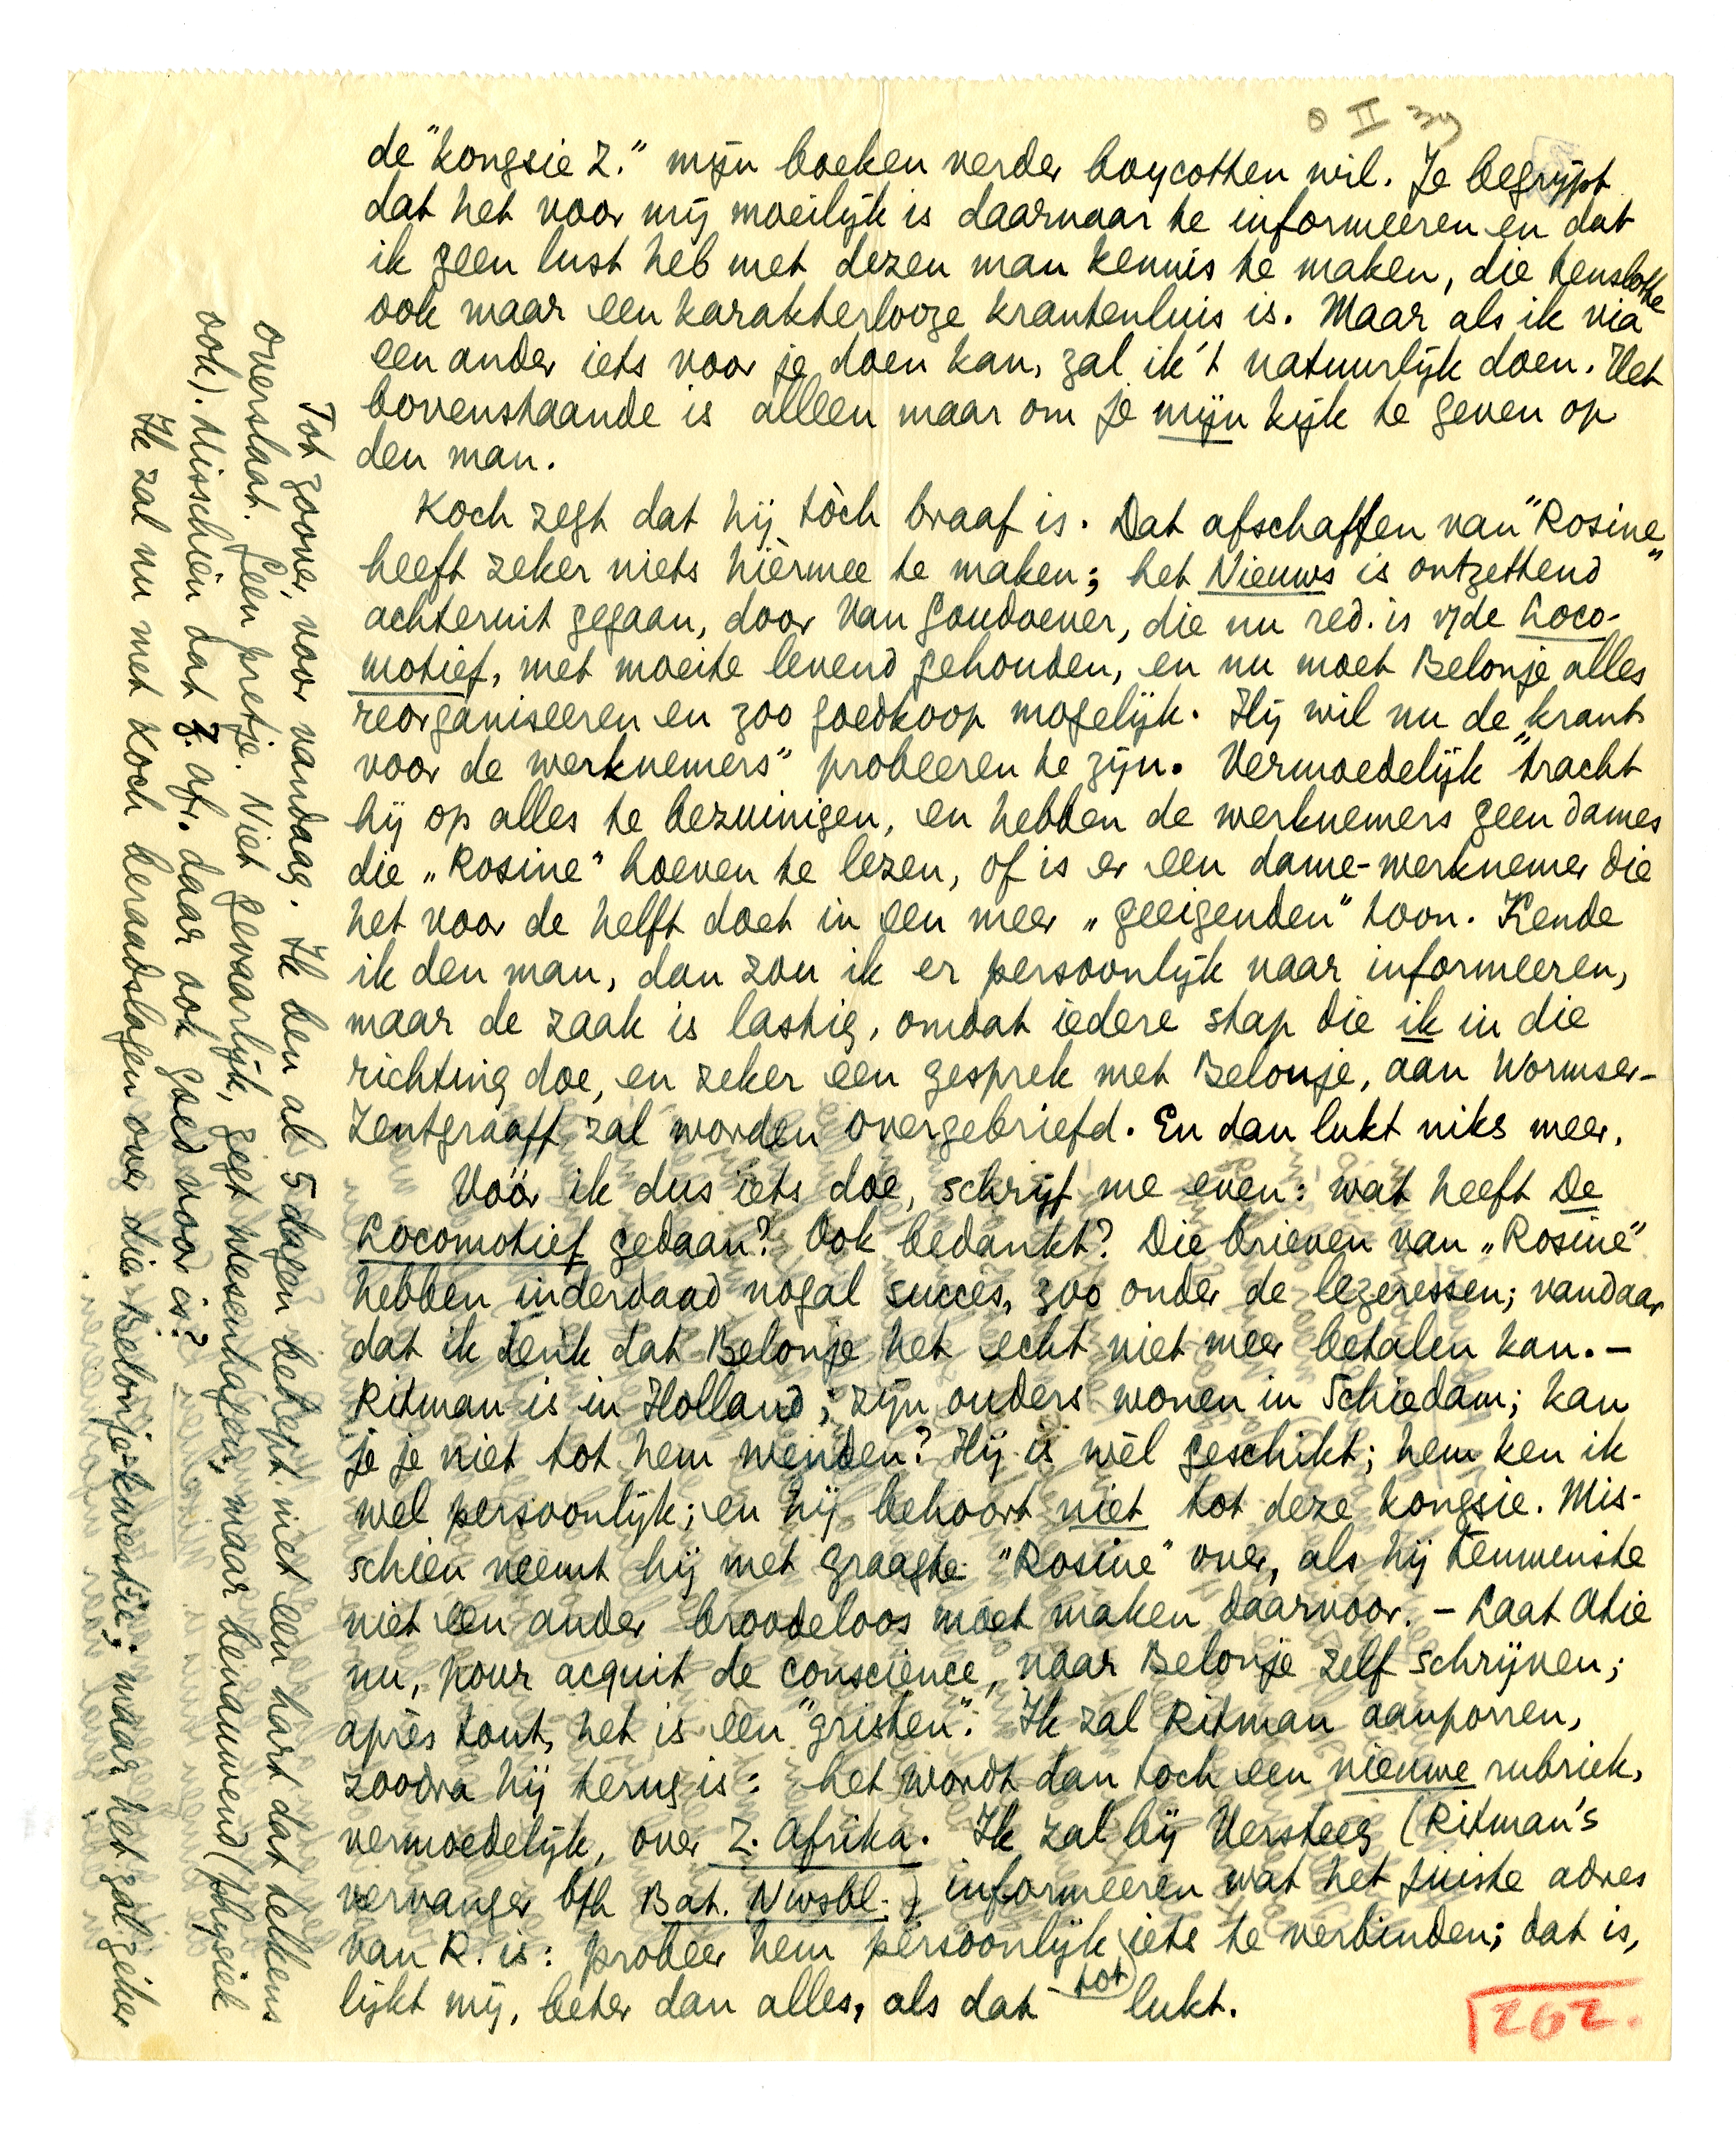 8 II 39
de "kongsie Z." mijn boeken verder boycotten wil. Je begrijpt
dat het voor mij moeilijk is daarnaar te informeeren en dat
ik geen lust heb met dezen man kennis te maken, die tenslotte
ook maar een karakterlooze krantenluis is. Maar als ik via
een ander iets voor je doen kan, zal ik 't natuurlijk doen. Het
bovenstaande is alleen maar om je mijn kijk te geven op
den man.
Koch zegt dat hij tòch braaf is. Dat afschaffen van "Rosine"
heeft zeker niets hièrmee te maken; het Nieuws is ontzettend
achteruit gegaan, door Van Goudoever, die nu red. is v/de Loco-
motief, met moeite levend gehouden, en nu moet Belonje alles
reorganiseeren en zoo goedkoop mogelijk. Hij wil nu de "krant
voor de werknemers" probeeren te zijn. Vermoedelijk tracht
hij op alles te bezuinigen, en hebben de werknemers geen dames
die "Rosine" hoeven te lezen, of is er een dame-werknemer die
het voor de helft doet in een meer "geeigenden" toon. Kende
ik den man, dan zou ik er persoonlijk naar informeeren,
maar de zaak is lastig, omdat iedere stap die ik in die
richting doe, en zeker een gesprek met Belonje, aan Wormser-
Zentgraaff zal worden overgebriefd. En dan lukt niks meer.
Vóór ik dus iets doe, schrijf me even: wat heeft De
Locomotief gedaan? Ook bedankt? Die brieven van "Rosine"
hebben inderdaad nogal succès, zoo onder de lezeressen; vandaar
dat ik denk dat Belonje het echt niet meer betalen kan. –
Ritman is in Holland; zijn ouders wonen in Schiedam; kan
je je niet tot hem wenden? Hij is wèl geschikt; hem ken ik
wel persoonlijk; en hij behoort niet tot deze kongsie. Mis-
schien neemt hij met graagte "Rosine" over, als hij tenminste
niet een ander broodeloos moet maken daarvoor. – Laat Atie
nu, pour acquit de conscience, naar Belonje zelf schrijven;
après tout, het is een "gristen". Ik zal Ritman aanporren,
zoodra hij terug is: het wordt dan toch een nieuwe rubriek,
vermoedelijk, over Z. Afrika. Ik zal bij Versteeg (Ritman's
vervanger b/h Bat. Nwsbl.) informeeren wat het juiste adres
van R. is: probeer hem persoonlijk tot iets te verbinden; dat is,
lijkt mij, beter dan alles, als dat lukt.
262.
Tot zoover, voor vandaag. Ik ben al 5 dagen behept met een hart dat telkens
overslaat. Geen pretje. Niet gevaarlijk, zegt Wesenhagen, maar benauwend (physiek
ook). Misschien dat Z. Afr. daar ook goed voor is?
Ik zal nu met Koch beraadslagen over die Belonje-kwestie; maar het zal zéker